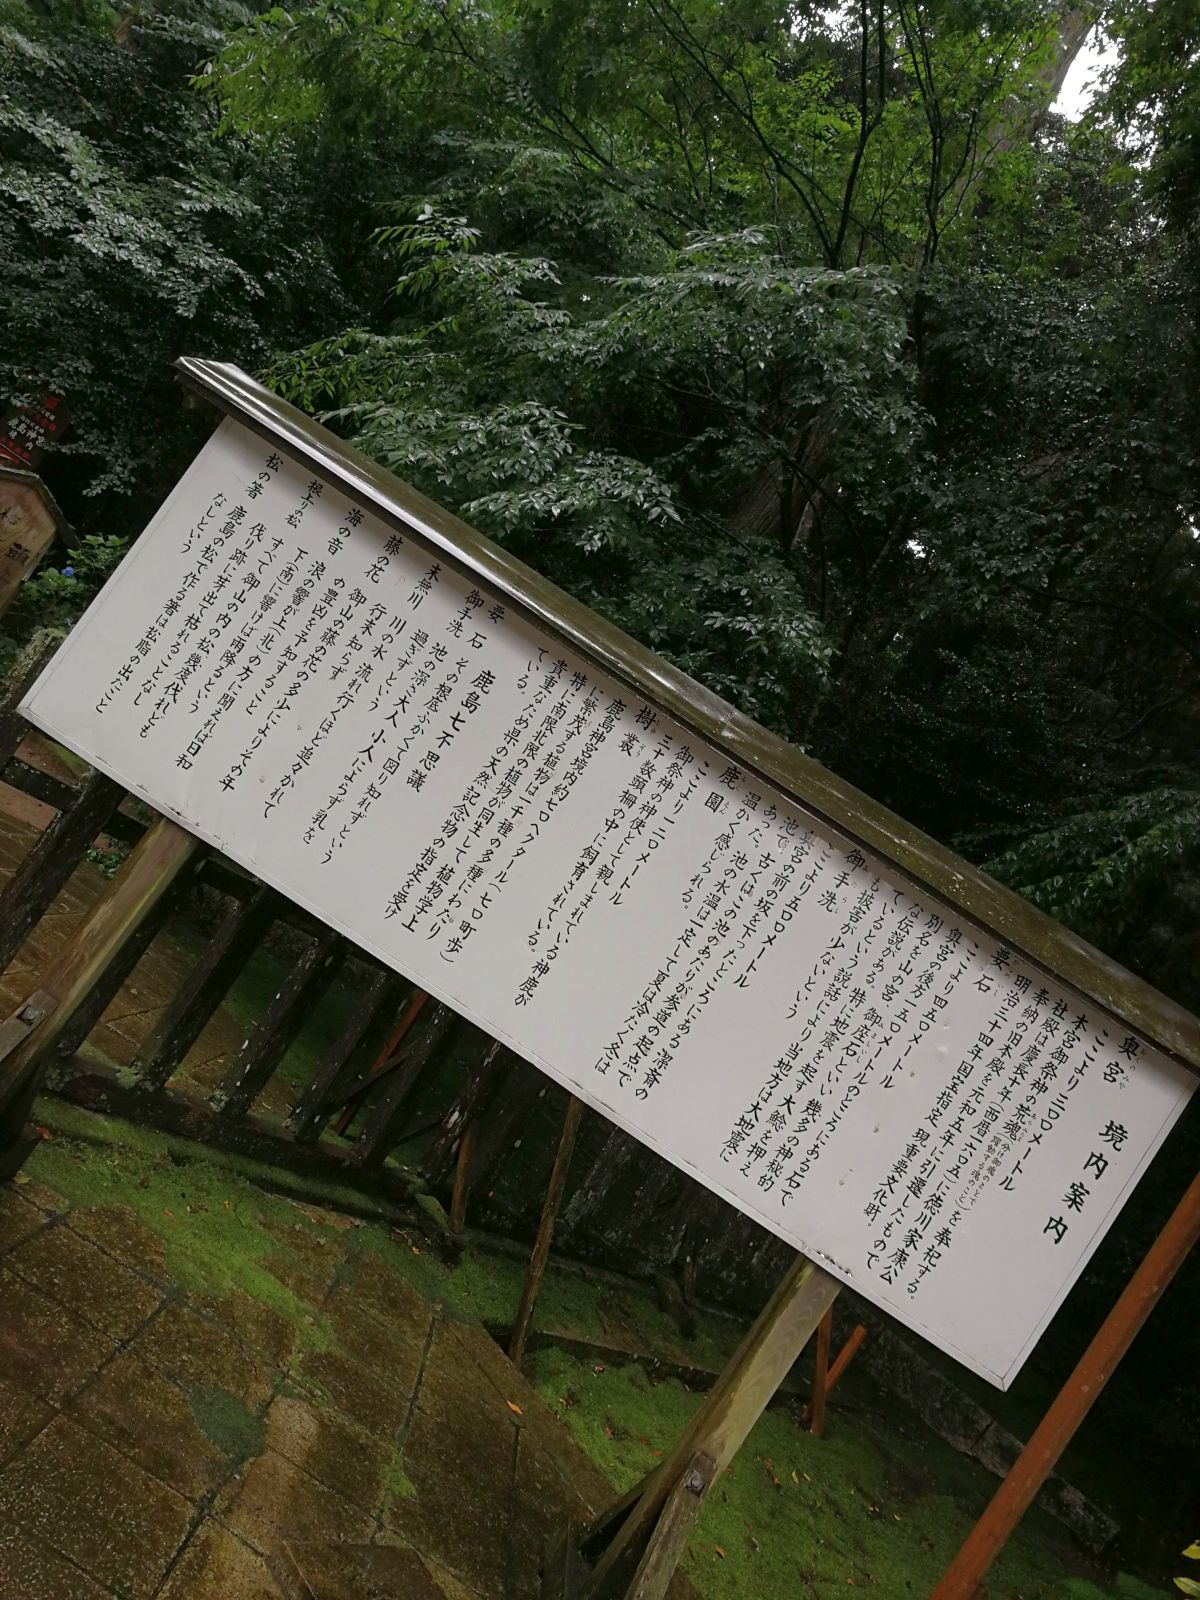 境内案内
奥宮
ここより三〇〇メートル
本宮御祭神の荒魂(分け御魂のことで躍動する魂のこと)を奉祀する。
社殿は慶長十年(西暦一六〇五)に徳川家康公
奉納の旧本殿を元和五年に引遷したもので
明治三十四年国宝指定 現重要文化財。
要石
ここより四五〇メートル
奥宮の後方一五〇メートルのところにある石で
別名を山の宮、御座石ともいい 幾多の神秘的
な伝説がある。特に地震を起す大鯰を押え
ているという説話により当地方は大地震に
も被害が少ないという
御手洗
ここより五〇〇メートル
奥宮の前の坂を下ったところにある潔斎の
池で、古くはこの池のあたりが参道の起点で
あった。池の水温は一定して夏は冷たく冬は
温かく感じられる。
鹿園
ここより一二〇メートル
御祭神の神使として親しまれている神鹿が
三十数頭柵の中に飼育されている。
樹叢
鹿島神宮境内約七〇ヘクタール(七〇町歩)
に繁茂する植物は一千種の多種にわたり
特に南限北限の植物が同生して植物学上
貴重なため県の天然記念物の指定を受け
ている。
鹿島七不思議
要石 その根底ふかくて図り知れずという
御手洗 池の深さ大人小人によらず乳を
過ぎずという
末無川 川の水 流れ行くほど追々かれて
行末知らず
藤の花 御山の藤の花の多少によりその年
の豊凶を予知すること
海の音 浪の響が上(北)の方に聞えれば日和
下(南)に響けば雨降るという
根上りの松 すべて御山の内の松、幾度伐れども
伐り跡に芽出て枯れることなし
松の箸 鹿島の松で作る箸は松脂の出たこと
なしという
鹿島神宮